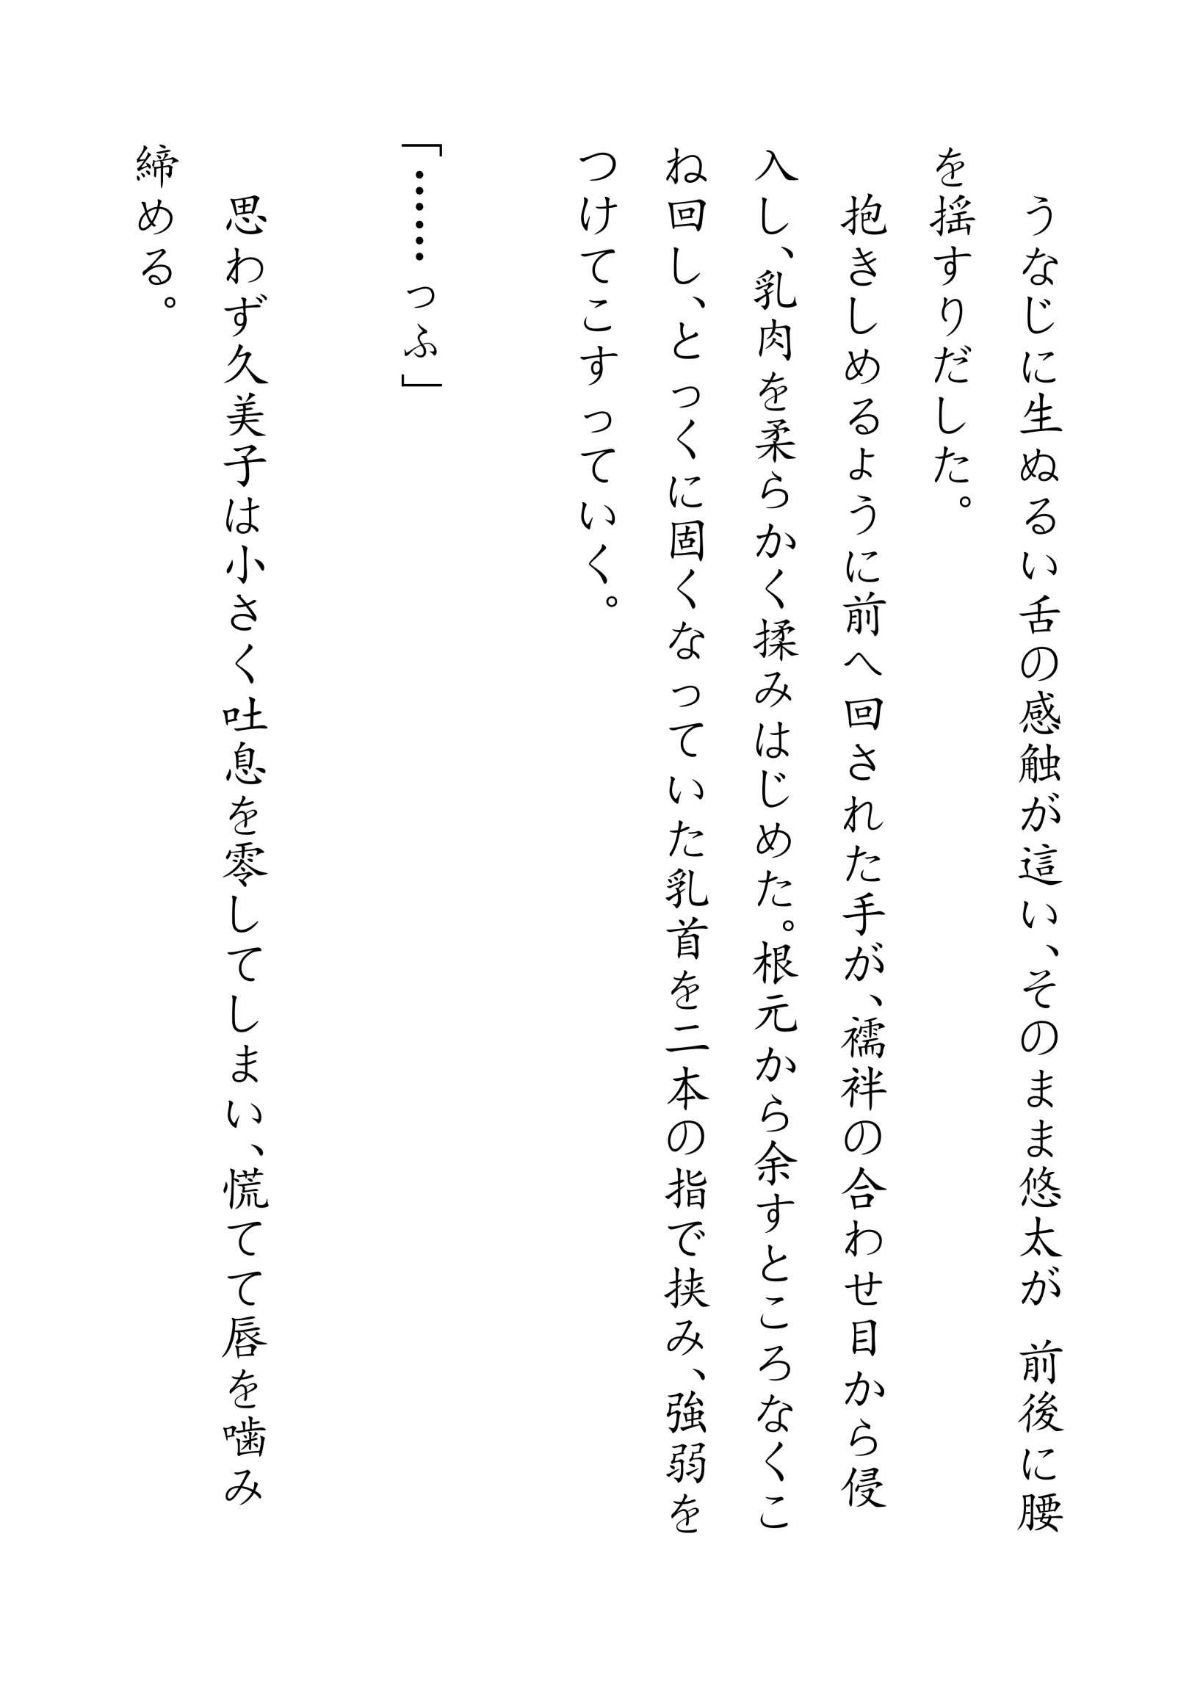 うなじに生ぬるい舌の感触が這い、そのまま悠太が 前後に腰
を揺すりだした。
抱きしめるように前へ回された手が、襦袢の合わせ目から侵
入し、乳肉を柔らかく揉みはじめた。根元から余すところなくこ
ね回し、とっくに固くなっていた乳首を二本の指で挟み、強弱を
つけてこすっていく。
「……っふ」
思わず久美子は小さく吐息を零してしまい、慌てて唇を噛み
締める。